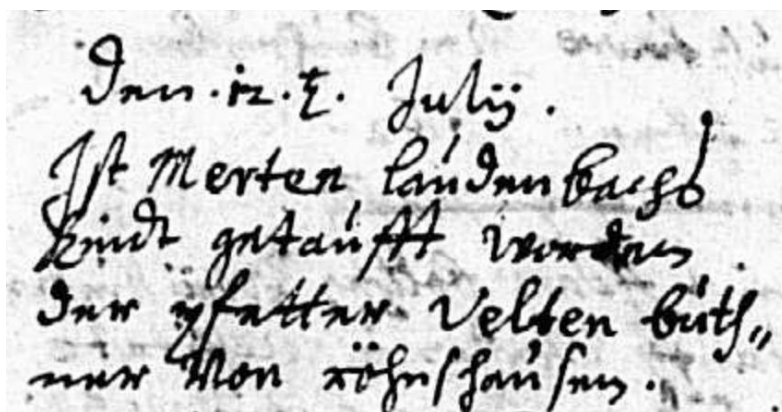 Den . 12 . t. Julÿ .
Ist Merten laudenbachs
kindt getaufft worden
der pfetter Velten büth„
ner Von röhnshausen .